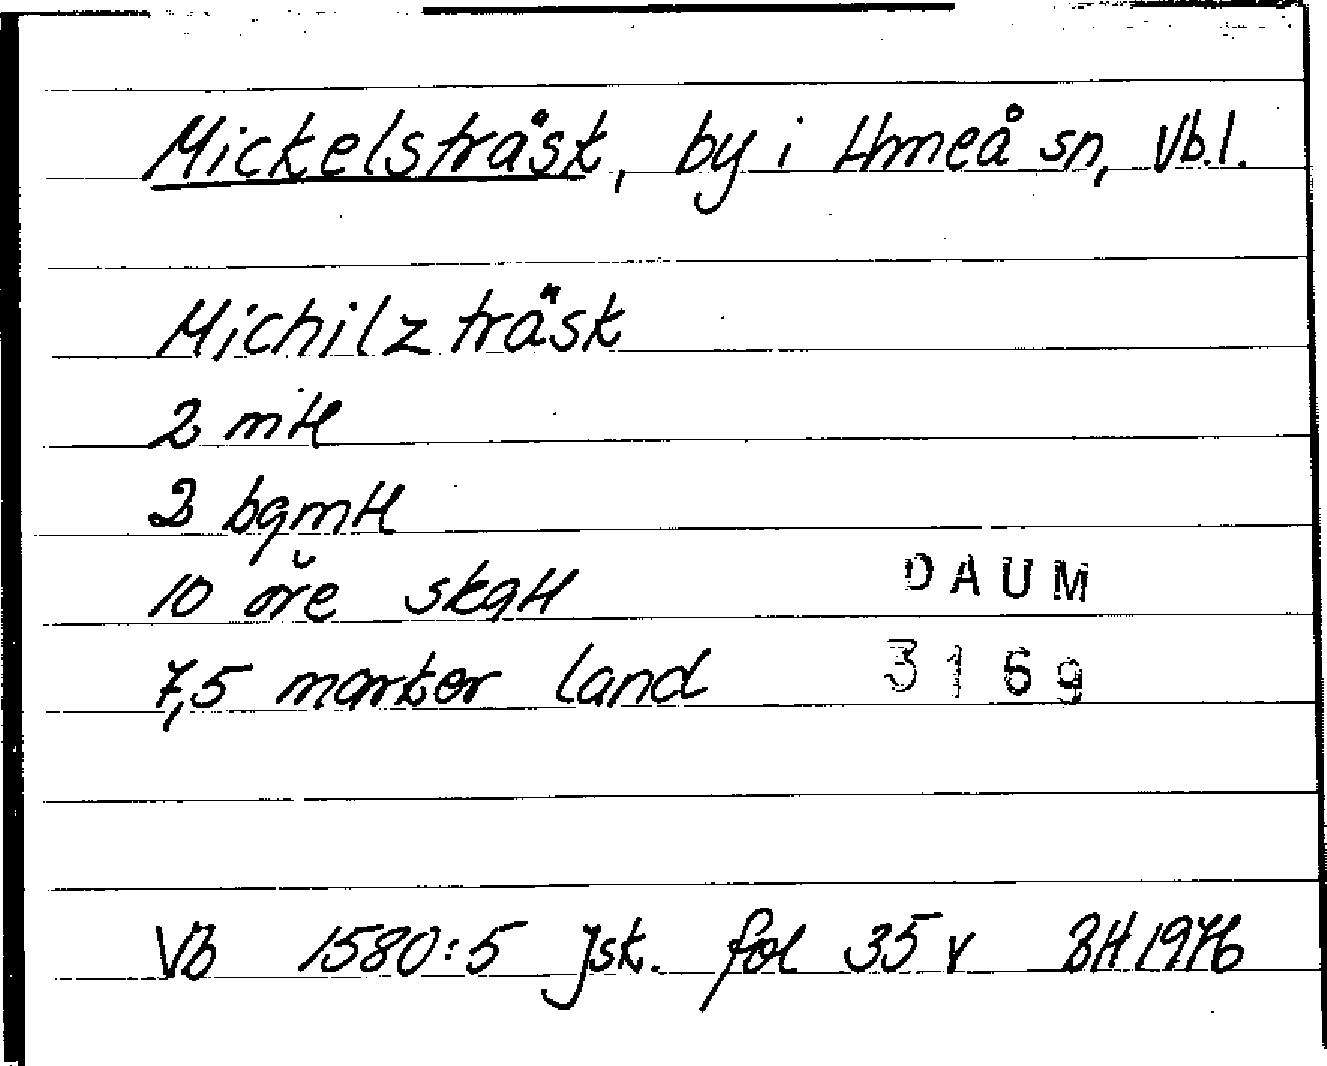 Mickelsträsk, by i Umeå sn, Vb.l.
Michilz träsk
2 mtl
2 bgmtl
10 öre skatt
7,5 marker land
DAUM
3169
Vb 1580:5 Jsk. fol 35 v BH 1976